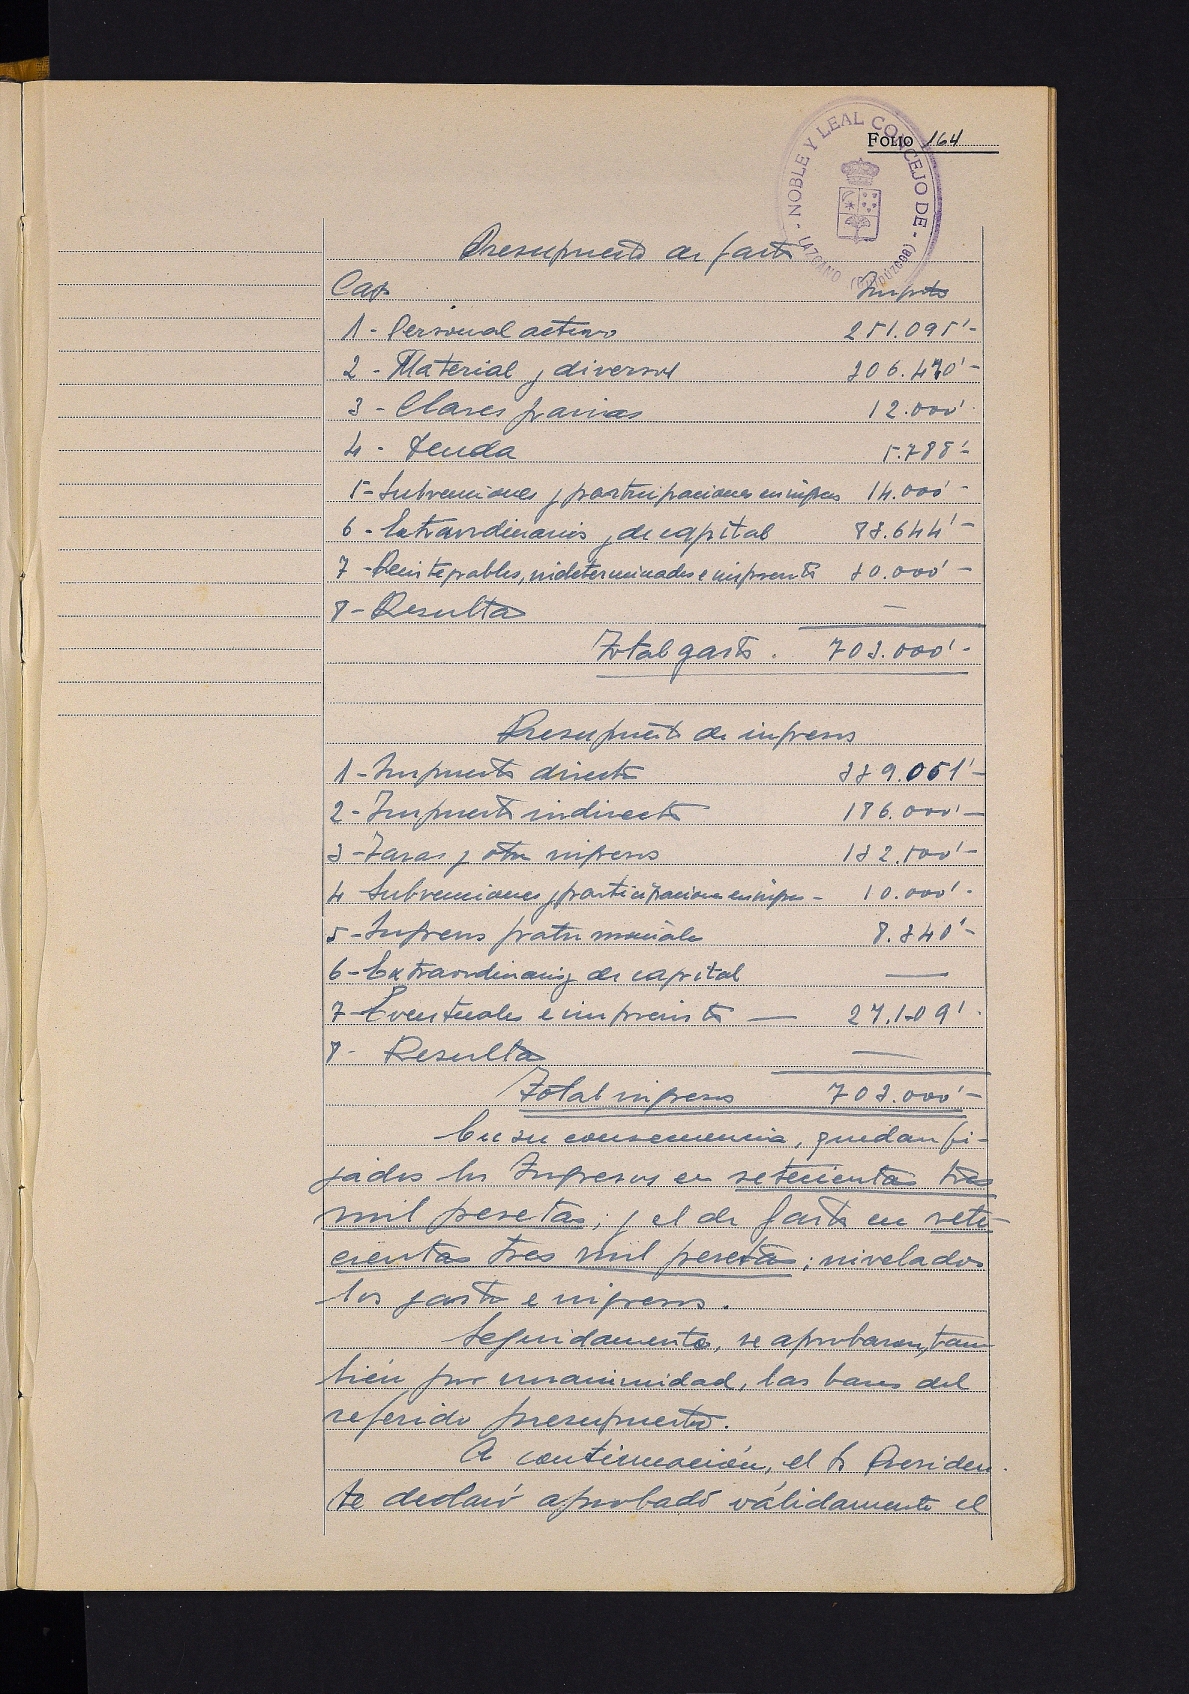 FOLIO 164
NOBLE Y LEAL CONCEJO DE - LAZCANO (GUIPÚZCOA)
Presupuesto de gastos
Cap Importe
1 - Personal activo 251.095'-
2 - Material y diversos 306.470'-
3 - Clases pasivas 12.000'-
4 - Deuda 5.788'-
5 - Subvenciones y participaciones en ingresos 14.000'-
6 - Extraordinarios y de capital 83.644'-
7 - Reintegrables, indeterminados e imprevistos 30.000'-
8 - Resultas —
Total gastos . 703.000'-
Presupuesto de ingresos
1 - Impuestos directos 339.051'-
2 - Impuestos indirectos 186.000'-
3 - Tasas y otros ingresos 132.500'-
4 Subvenciones y participaciones en ingresos - 10.000'-
5 - Ingresos patrimoniales 8.340'-
6 - Extraordinarios y de capital —
7 - Eventuales e imprevistos — 27.109'-
8 - Resultas —
Total ingresos 703.000'-
En su consecuencia, quedan fi-
jados los Ingresos en setecientas tres
mil pesetas; y el de Gastos en sete-
cientas tres mil pesetas; nivelados
los gastos e ingresos.
Seguidamente, se aprobaron, tam-
bién por unanimidad, las bases del
referido presupuesto.
A continuación, el Sr Presiden-
te declaró aprobado válidamente el